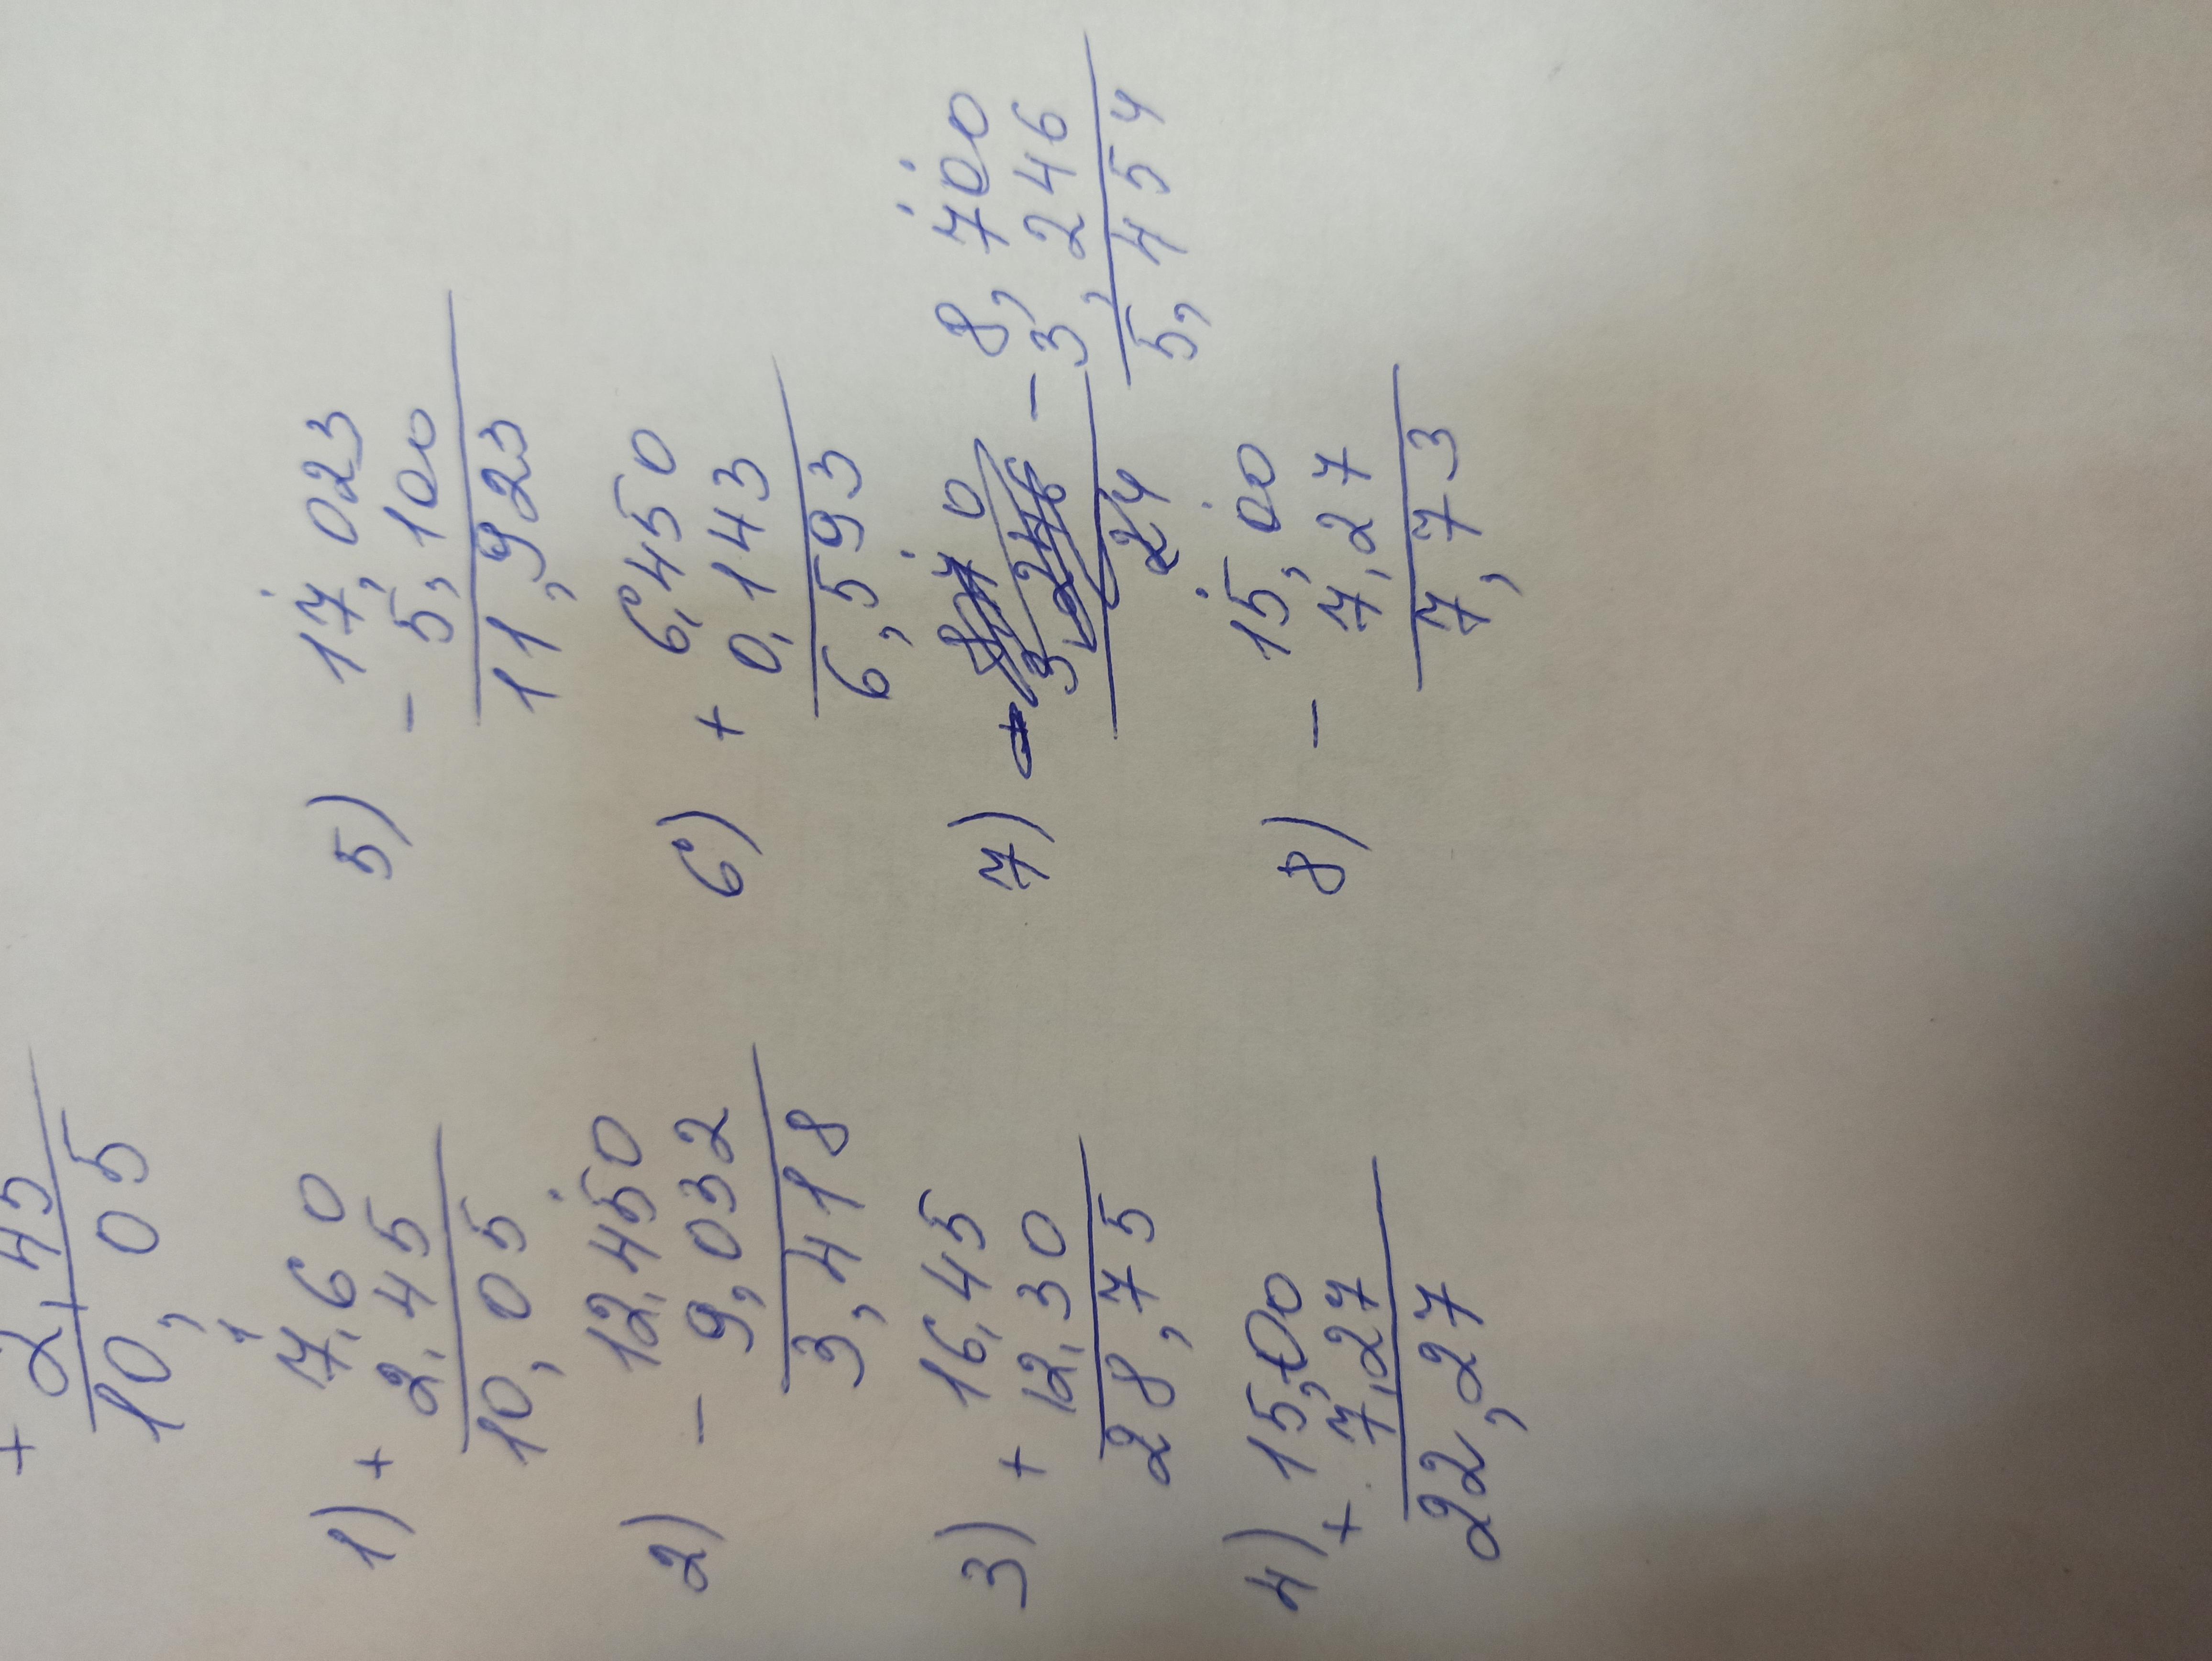 + 2,45
10,05
1
1) + 7,60
2,45
10,05
2) - 12,450
9,032
3,418
3) + 16,45
12,30
28,75
4) + 15,00
7,27
22,27
5) - 17,023
5,100
11,923
6) + 6,450
0,143
6,593
7)
24
- 8,700
3,246
5,454
8) - 15,00
7,27
7,73